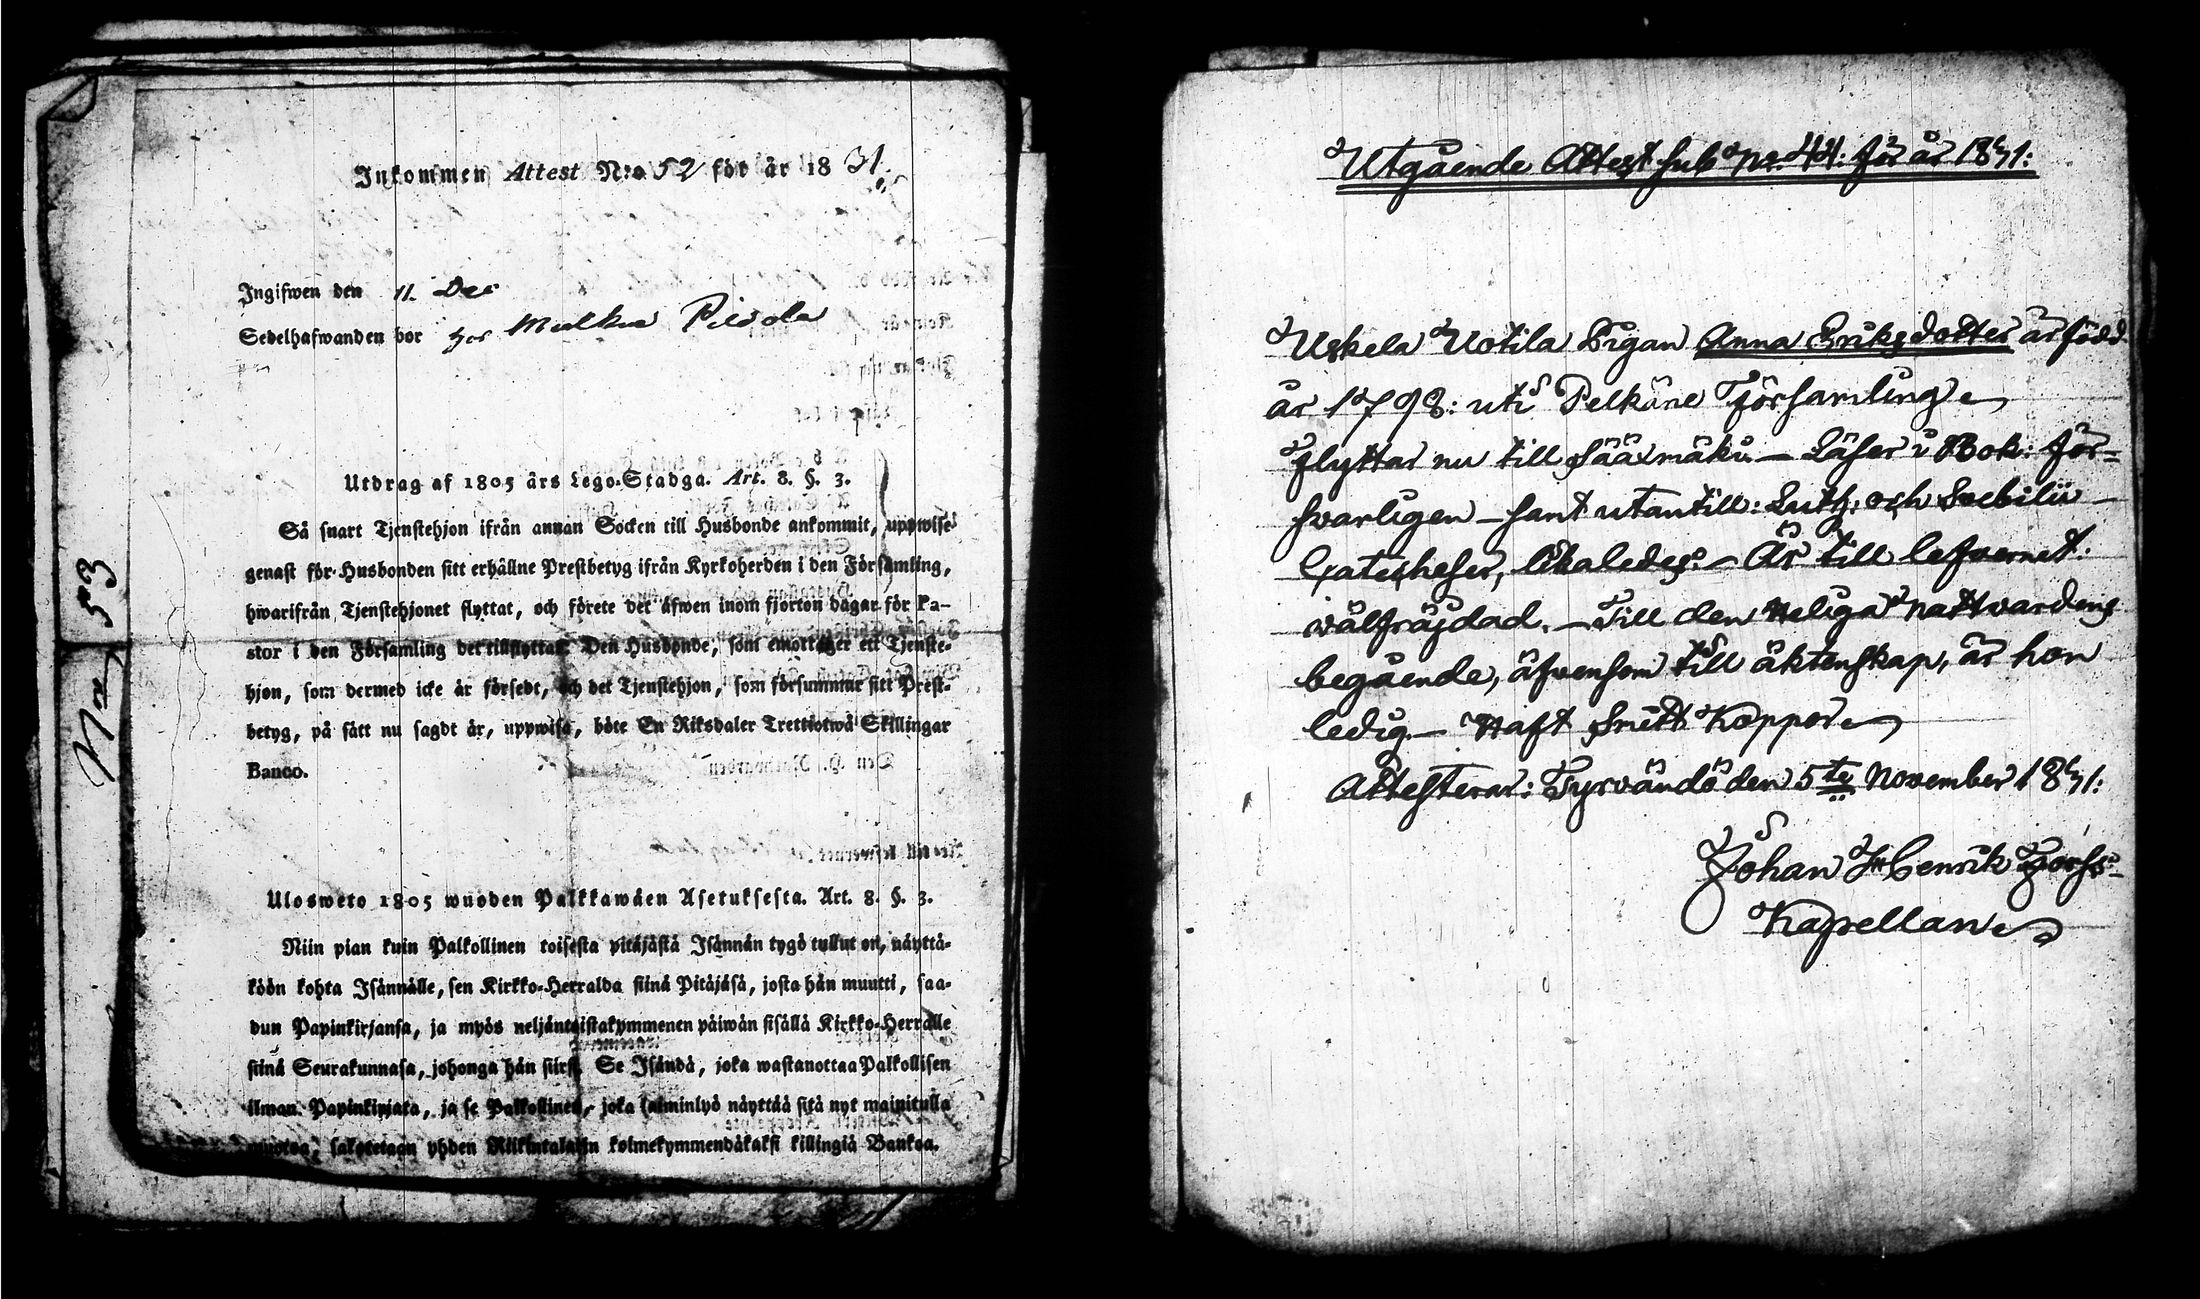 Inkommen Attest N:o 52 för år 1831.
Ingifwen den 11. Dec
Sedelhafwanden bor hos
Utdrag af 1805 års Lego-Stadga. Art. 8. §. 3.
Så snart Tjenstehjon ifrån annan Socken till Husbonde ankommit, uppwise
genast för Husbonden sitt erhållne Prestbetyg ifrån Kyrkoherden i den Församling,
hwarifrån Tjenstehjonet flyttat, och förete det äfwen inom fjorton dagar för Pa-
stor i den Församling det tillflyttat. Den Husbonde, som emottager ett Tjenste-
hjon, som dermed icke är försedt, och det Tjenstehjon, som försummar sitt Prest-
betyg, på sätt nu sagdt är, uppwisa, böte En Riksdaler Trettiotwå Skillingar
Banco.
No 53
Ulosweto 1805 wuoden Palkkawäen Asetuksesta. Art. 8. §. 3.
Niin pian kuin Palkollinen toisesta pitäjästä Isännän tygö tullut on, näyttä-
köön kohta Isännälle, sen Kirkko-Herralda siinä Pitäjäsä, josta hän muutti, saa-
dun Papinkirjansa, ja myös neljäntoistakymmenen päiwän sisällä Kirkko-Herralle
siinä Seurakunnasa, johonga hän siirsi. Se Isändä, joka wastanottaa Palkollisen
ilman Papinkirjata, ja se Palkollinen, joka laiminlyö näyttää sitä nyt mainitulla
muotoa, sakotetaan yhden Riikintalarin kolmekymmendäkaksi killingiä Bankoa.
Utgående Attest sub No. 44: för år 1831:
Uskela Uotila Pigan Anna Eriksdotter är född
år 1798: uti Pelkäne Församling
Flyttar nu till Sääxmäki — Läser i Bok: för=
svarligen — samt utantill: Luth: och Svebilii
Catecheser, likaledes. — Är till lefvernet:
välfräjdad. — Till den Heliga Nattvardens
begående, äfvensom till äktenskap, är hon
ledig — Haft Smitt Koppor
Attesterar: Tyrvändö den 5te November 1831:
Johan Henrik Forss
Kapellan